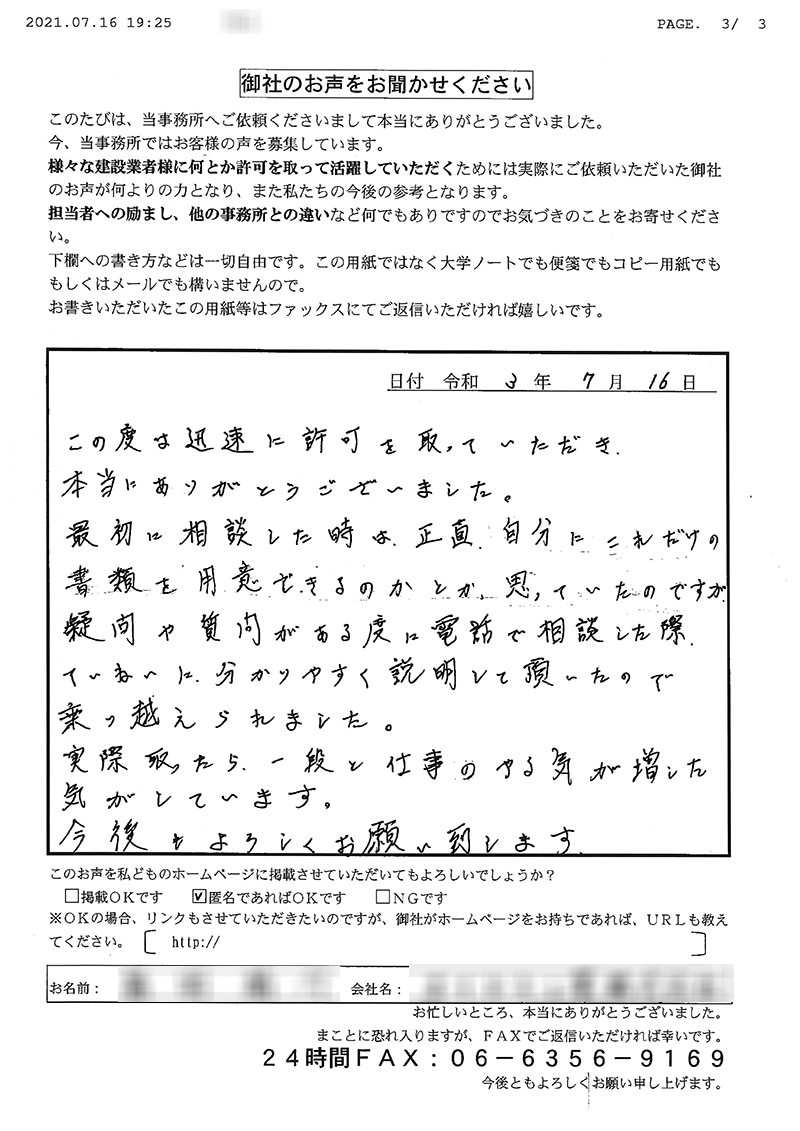 2021.07.16 19:25 PAGE. 3/ 3
御社のお声をお聞かせください
このたびは、当事務所へご依頼くださいまして本当にありがとうございました。
今、当事務所ではお客様の声を募集しています。
様々な建設業者様に何とか許可を取って活躍していただくためには実際にご依頼いただいた御社
のお声が何よりの力となり、また私たちの今後の参考となります。
担当者への励まし、他の事務所との違いなど何でもありですのでお気づきのことをお寄せくださ
い。
下欄への書き方などは一切自由です。この用紙ではなく大学ノートでも便箋でもコピー用紙でも
もしくはメールでも構いませんので。
お書きいただいたこの用紙等はファックスにてご返信いただければ嬉しいです。
日付 令和 3 年 7 月 16 日
この度は迅速に許可を取っていただき、
本当にありがとうございました。
最初に相談した時は、正直、自分にこれだけの
書類を用意できるのかとか、思っていたのですが
疑問や質問がある度に電話で相談した際、
ていねいに、分かりやすく説明して頂いたので
乗り越えられました。
実際取ったら、一段と仕事のやる気が増した
気がしています。
今後もよろしくお願い致します。
このお声を私どものホームページに掲載させていただいてもよろしいでしょうか？
□掲載ＯＫです ☑匿名であればＯＫです □ＮＧです
※ＯＫの場合、リンクもさせていただきたいのですが、御社がホームページをお持ちであれば、ＵＲＬも教え
てください。 [ http:// ]
お名前： 会社名：
お忙しいところ、本当にありがとうございました。
まことに恐れ入りますが、ＦＡＸでご返信いただければ幸いです。
２４時間ＦＡＸ：０６－６３５６－９１６９
今後ともよろしくお願い申し上げます。